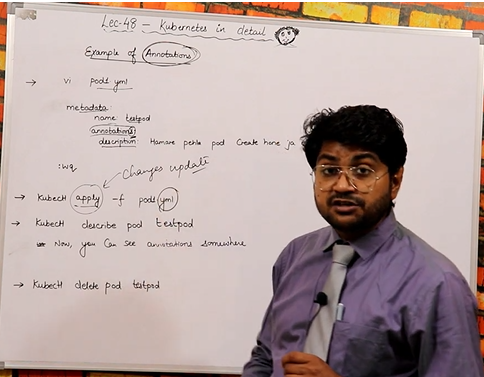 Lec-48 - Kubernetes in detail
Example of Annotations
→ vi pod1 yml
metadata:
name testpod
annotations
description Hamare pehle pod Create hone ja
:wq
changes update
→ Kubectl apply -f pod1 yml
→ Kubectl describe pod testpod
Now, you Can See annotations somewhere
→ Kubectl delete pod testpod